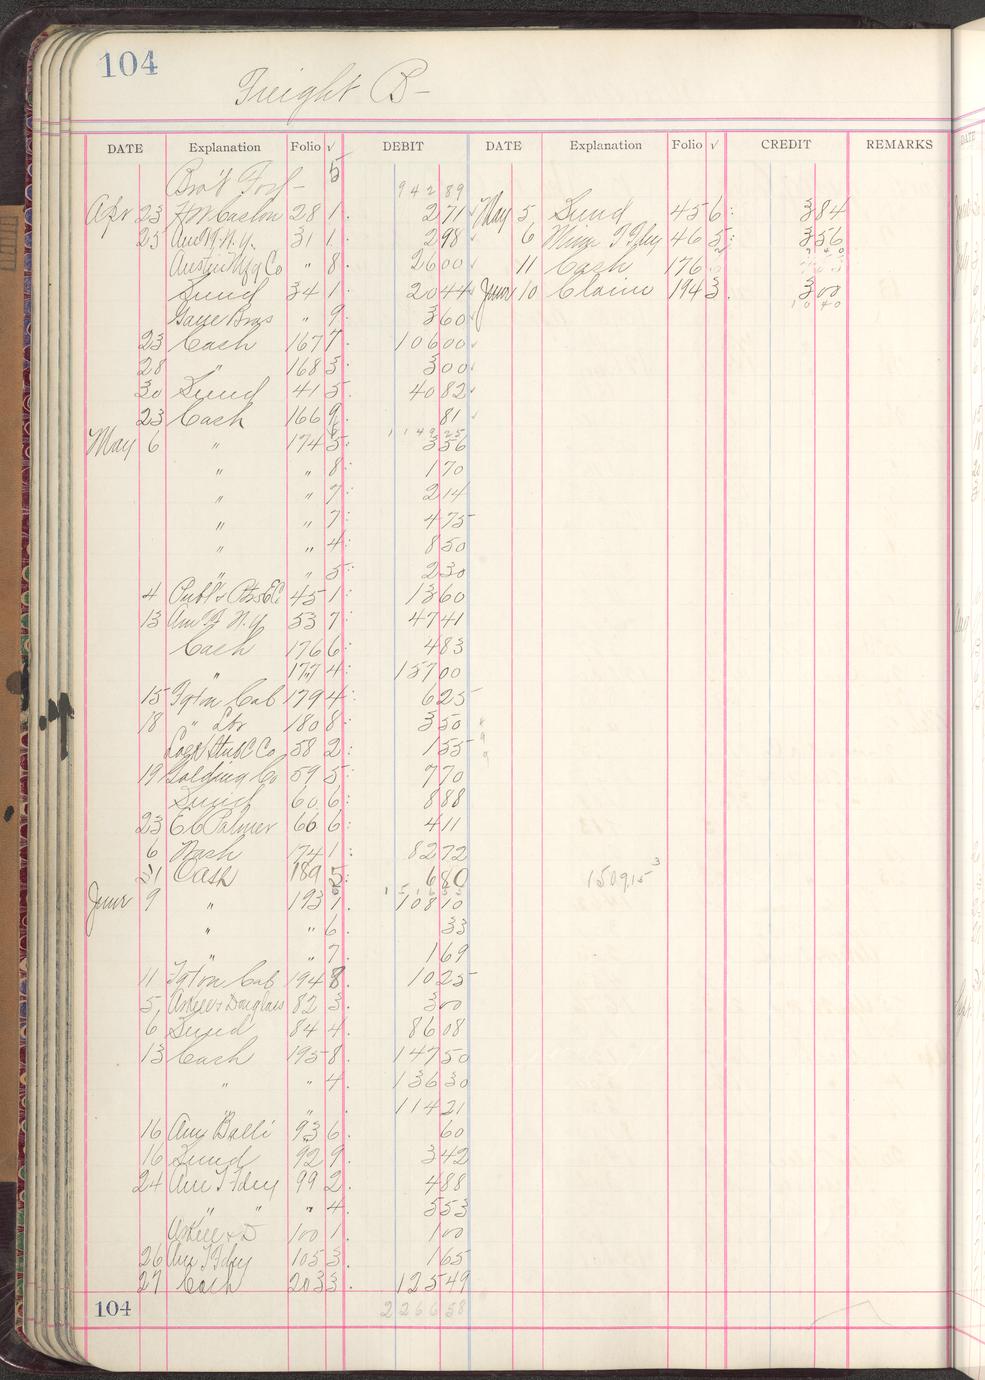 104
Freight B-
DATE Explanation Folio √ DEBIT DATE Explanation Folio √ CREDIT REMARKS
Bro't Ford - 5 942 89
Apr 23 28 1 2 71 May 5 Sund 45 6 3 84
25 Am N.Y. 31 1 2 98 6 Tfdry 46 5 3 56
Austin Mfg Co " 8 26 00 11 Cash 176
Sund 34 1 20 44 June 10 Claim 194 3 3 00
Gage Bros " 9 3 60 10 40
23 Cash 167 7 106 00
28 " 168 3 3 00
30 Sund 41 5 40 82
23 Cash 166 9 81
1149 25
May 6 " 174 5 3 56
" " 8 1 70
" " 7 2 14
" " 7 4 75
" " 4 8 50
" " 5 2 30
4 45 1 13 60
13 Am N.Y. 53 7 47 41
Cash 176 6 4 83
" 177 4 157 00
15 Cab 179 4 6 25
18 " 180 8 3 50
Co 58 2 1 55
19 Golding Co 59 5 7 70
Sund 60 6 8 88
23 E C Palmer 66 6 4 11
6 Nash 174 1 82 72
31 Cash 189 5 6 80 1509.15
June 9 " 193 1 108 10
" " 6 33
" " 7 1 69
11 Cab 194 8 10 25
5 & Douglas 82 3 3 00
6 Sund 84 4 86 08
13 Cash 195 8 147 50
" " 4 136 30
" " 114 21
16 Am 93 6 60
16 Sund 92 9 3 42
24 Am T Fdry 99 2 4 88
" " " 4 5 53
& D 100 1 1 00
26 Am T Fdry 105 3 1 65
27 Cash 203 3 125 49
104 2266 58